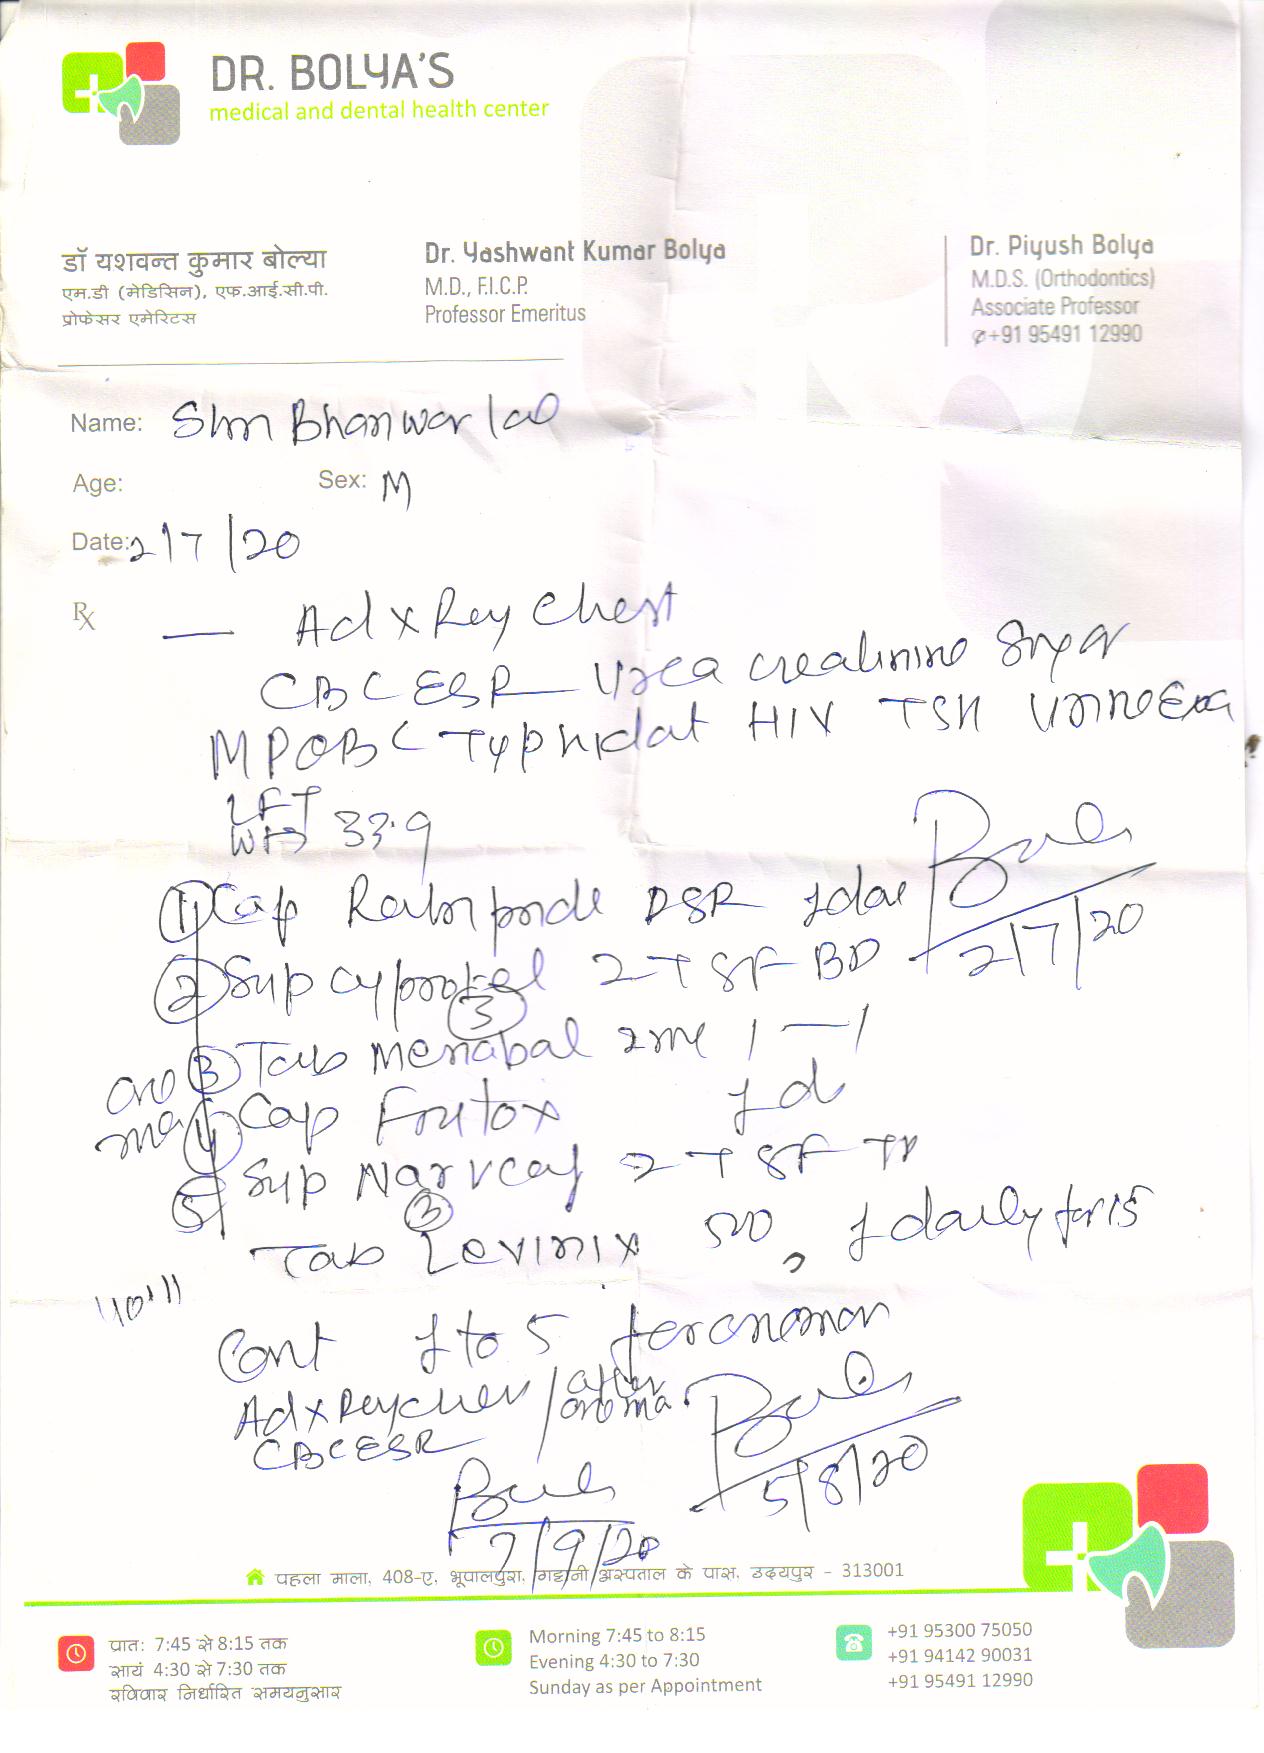 DR. BOLYA'S
medical and dental health center
डॉ यशवन्त कुमार बोल्या
एम.डी (मेडिसिन), एफ.आई.सी.पी.
प्रोफेसर एमेरिटस
Dr. Yashwant Kumar Bolya
M.D., F.I.C.P.
Professor Emeritus
Dr. Piyush Bolya
M.D.S. (Orthodontics)
Associate Professor
+91 95491 12990
Name: Shri Bhanwar lal
Age: Sex: M
Date: 2/7/20
Rx
Ad x Ray Chest
CBC ESR Urea creatinine Sugar
MPQBC Typhidot HIV TSH Urine
LFT
Wt 33.9
2/7/20
① Cap DSR 1
② Syp 2 TSF BD
③
③ Tab 1 — 1
④ Cap 1 d
⑤ Syp 2 TSF
③
Tab Levinix 500, 1 daily for 15
Cont 1 to 5 for
Ad x Ray Chest / after
CBC ESR
5/8/20
7/9/20
पहला माला, 408-ए, भूपालपुरा, अस्पताल के पास, उदयपुर - 313001
प्रात: 7:45 से 8:15 तक
सायं 4:30 से 7:30 तक
रविवार निर्धारित समयनुसार
Morning 7:45 to 8:15
Evening 4:30 to 7:30
Sunday as per Appointment
+91 95300 75050
+91 94142 90031
+91 95491 12990